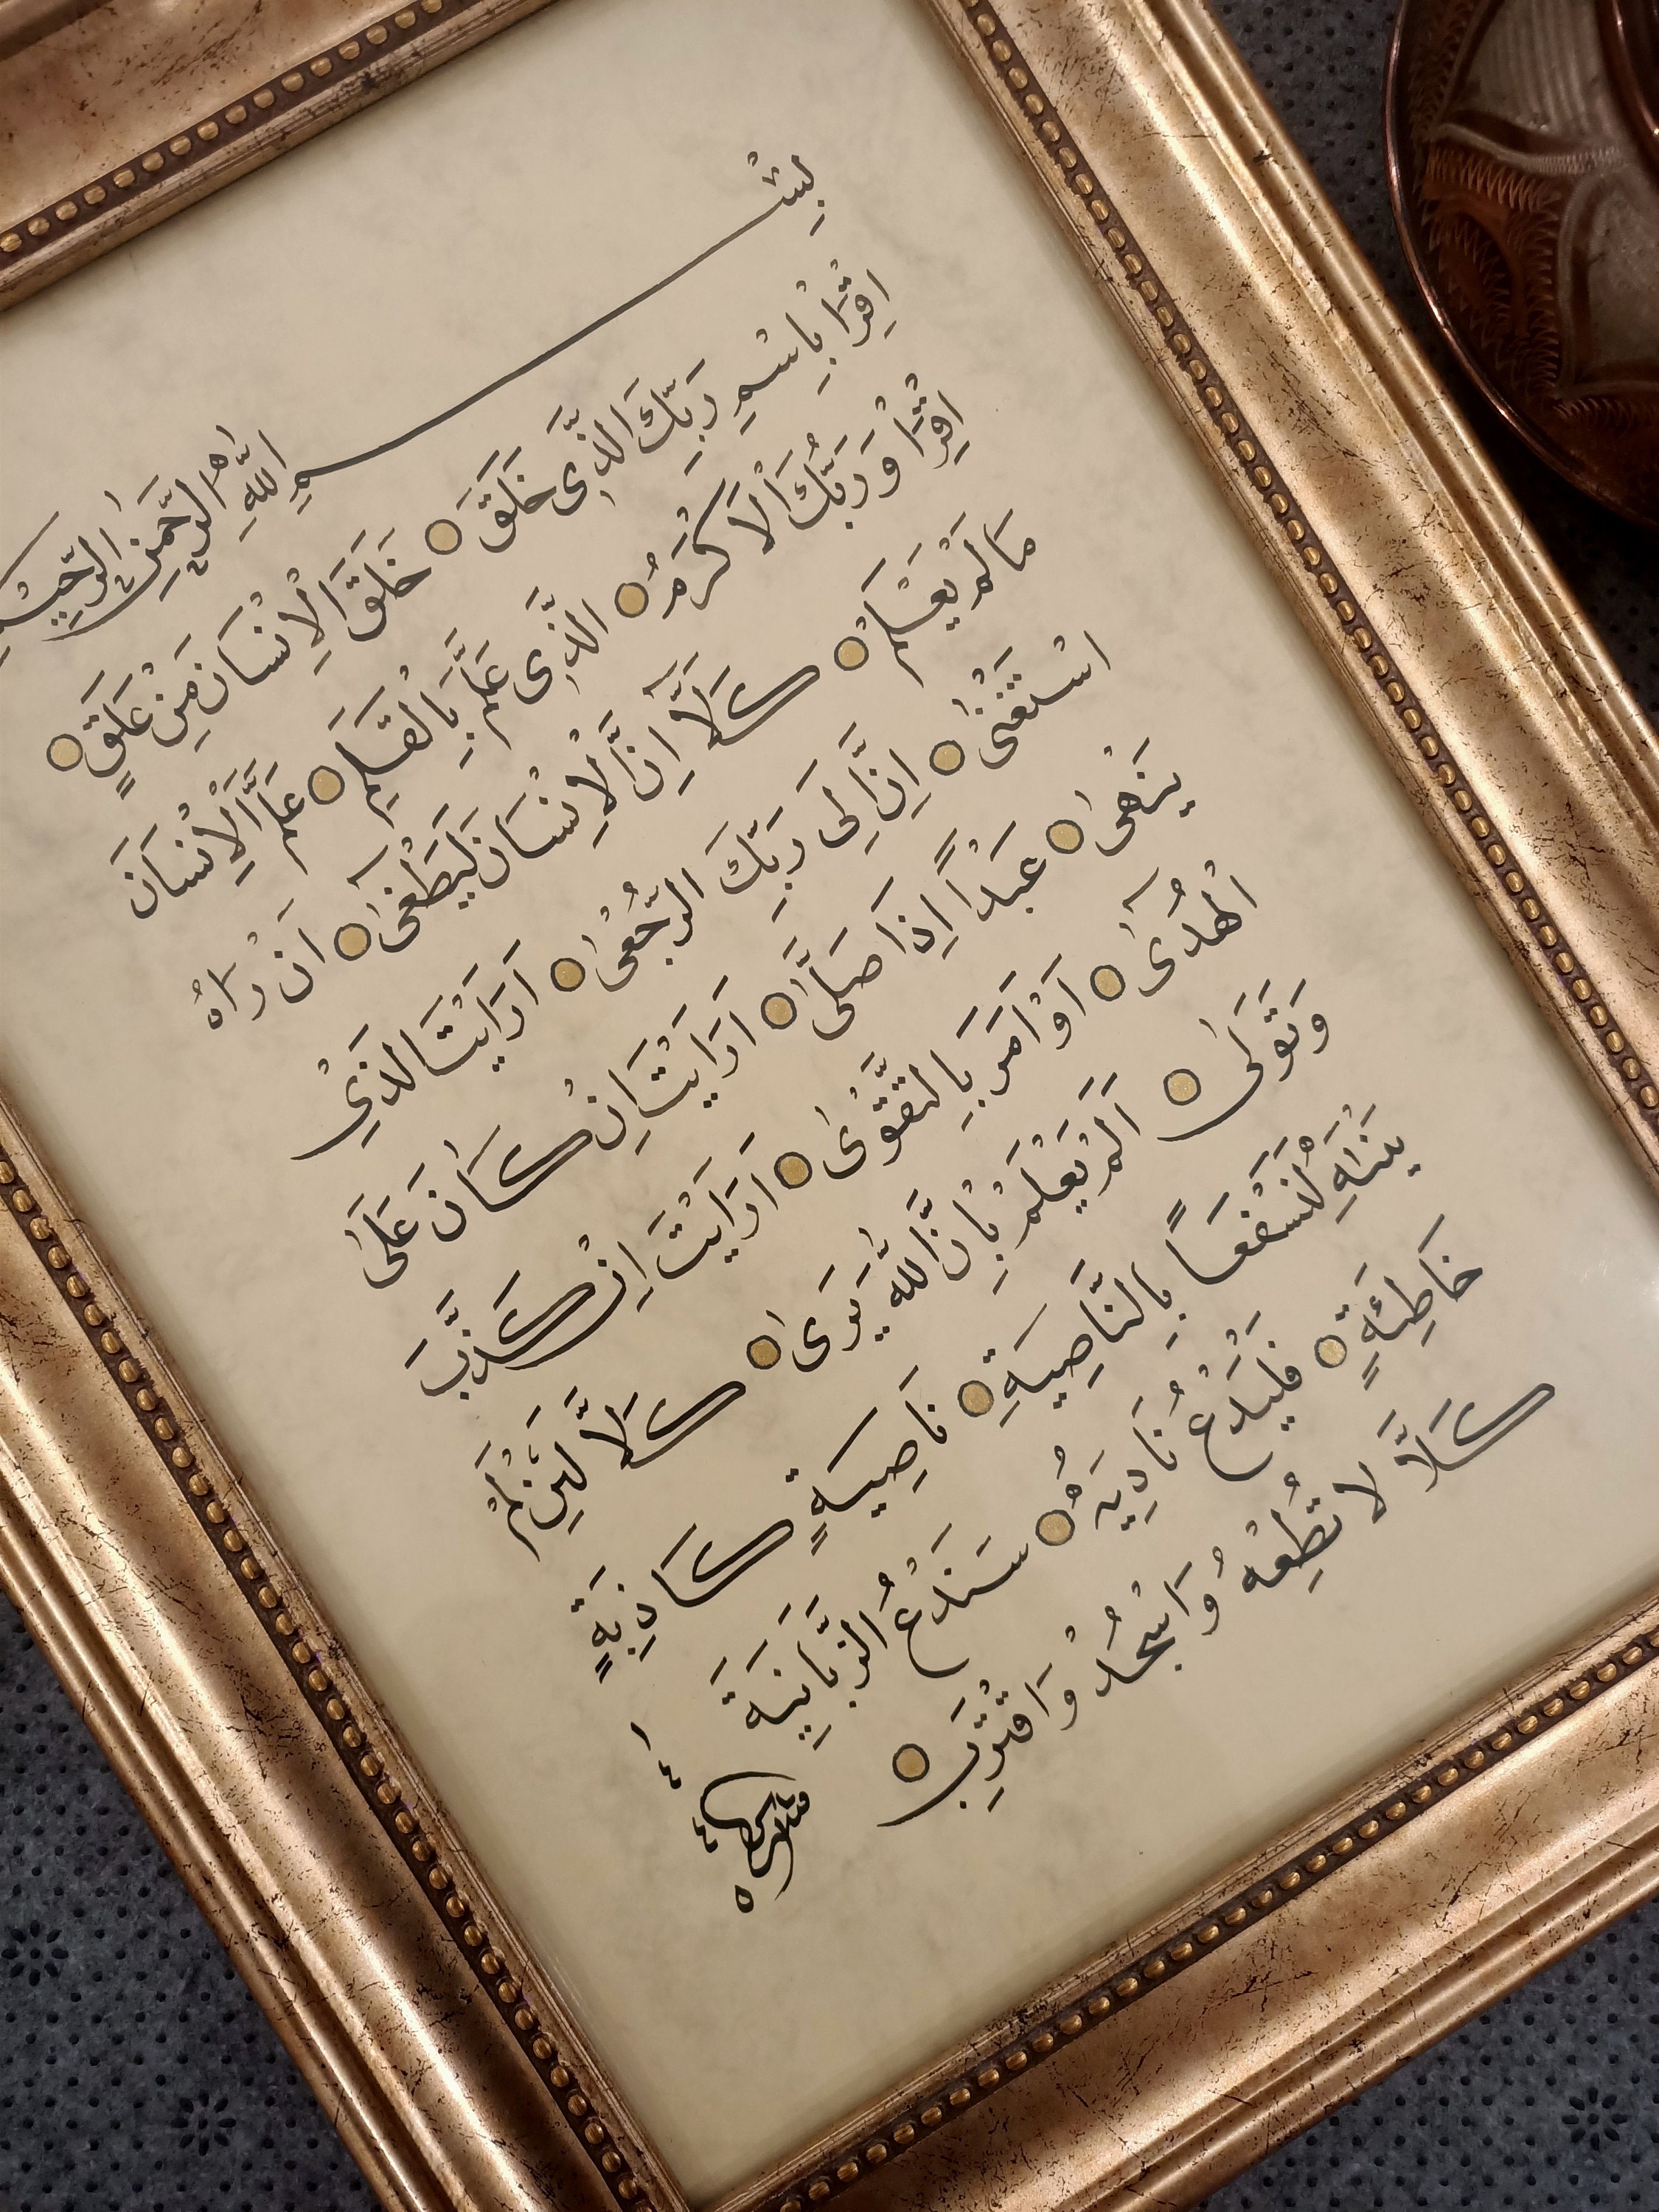 بِسْمِ اللّٰهِ الرَّحْمٰنِ الرَّحِيْمِ
اِقْرَاْ بِاسْمِ رَبِّكَ الَّذِى خَلَقَ ○ خَلَقَ الْاِنْسَانَ مِنْ عَلَقٍ ○
اِقْرَاْ وَرَبُّكَ الْاَكْرَمُ ○ الَّذِى عَلَّمَ بِالْقَلَمِ ○ عَلَّمَ الْاِنْسَانَ
مَالَمْ يَعْلَمْ ○ كَلَّآ اِنَّ الْاِنْسَانَ لَيَطْغٰىٓ ○ اَنْ رَاٰهُ
اسْتَغْنٰى ○ اِنَّ اِلَى رَبِّكَ الرُّجْعٰى ○ اَرَاَيْتَ الَّذِيْ
يَنْهٰى ○ عَبْدًا اِذَا صَلّٰى ○ اَرَاَيْتَ اِنْ كَانَ عَلَى
الْهُدٰىٓ ○ اَوْ اَمَرَ بِالتَّقْوٰى ○ اَرَاَيْتَ اِنْ كَذَّبَ
وَتَوَلّٰى ○ اَلَمْ يَعْلَمْ بِاَنَّ اللّٰهَ يَرٰى ○ كَلَّا لَئِنْ لَمْ
يَنْتَهِ لَنَسْفَعًا بِالنَّاصِيَةِ ○ نَاصِيَةٍ كَاذِبَةٍ
خَاطِئَةٍ ○ فَلْيَدْعُ نَادِيَهُ ○ سَنَدْعُ الزَّبَانِيَةَ
كَلَّا لَا تُطِعْهُ وَاسْجُدْ وَاقْتَرِبْ ○
١٤٤٥